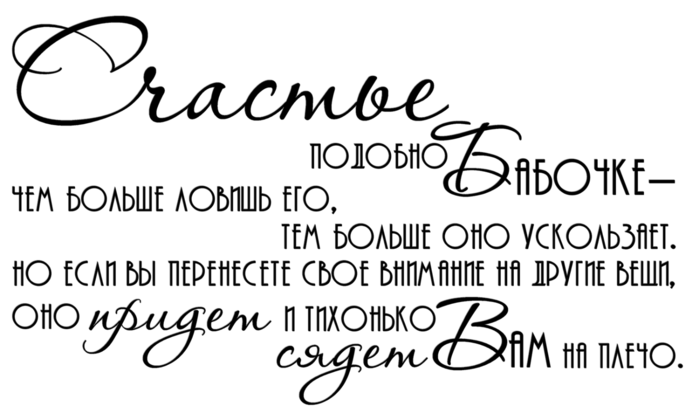 Счастье
подобно Бабочке—
чем больше ловишь его,
тем больше оно ускользает.
Но если вы перенесете свое внимание на другие вещи,
оно придет и тихонько
сядет Вам на плечо.